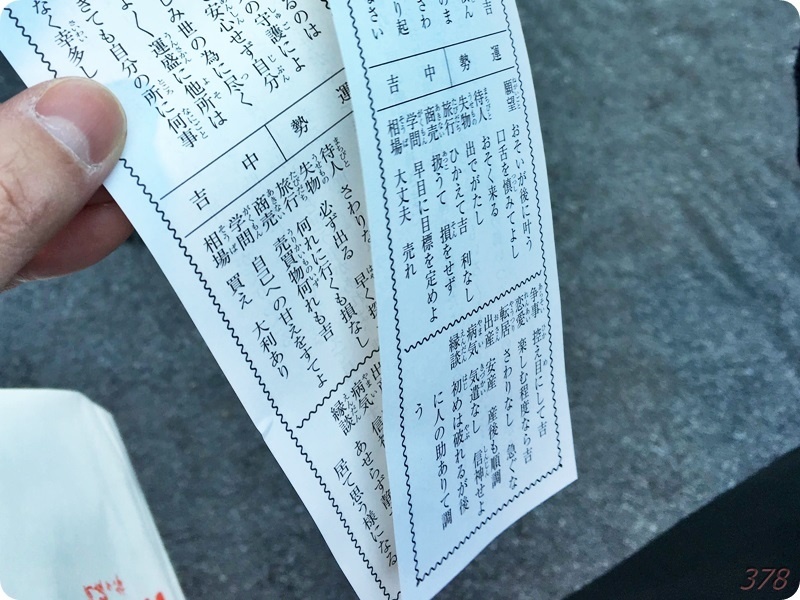 吉
運勢　中吉
願望　おそいが後に叶う
口舌を慎みてよし
待人　おそく来る
失物　出でがたし
旅行　ひかえて吉　利なし
商売　扱うて　損をせず
学問　早目に目標を定めよ
相場　大丈夫　売れ
争事　控え目にして吉
恋愛　楽しむ程度なら吉
転居　さわりなし　急ぐな
出産　安産　産後も順調
病気　気遣なし　信神せよ
縁談　初めは破れるが後
に人の助ありて調
う
の守護により
安心せず自分
世の為に尽く
運盛に他所は
ても自分の所に何事
なく幸多し
運勢　中吉
待人　さわりな　早く
失物　必ず出る
旅行　何れに行くも損なし
商売　売買物何れも吉
学問　自己への甘えをすてよ
相場　買え　大利あり
病気　信
縁談　あせらず
居て思う様になる
378